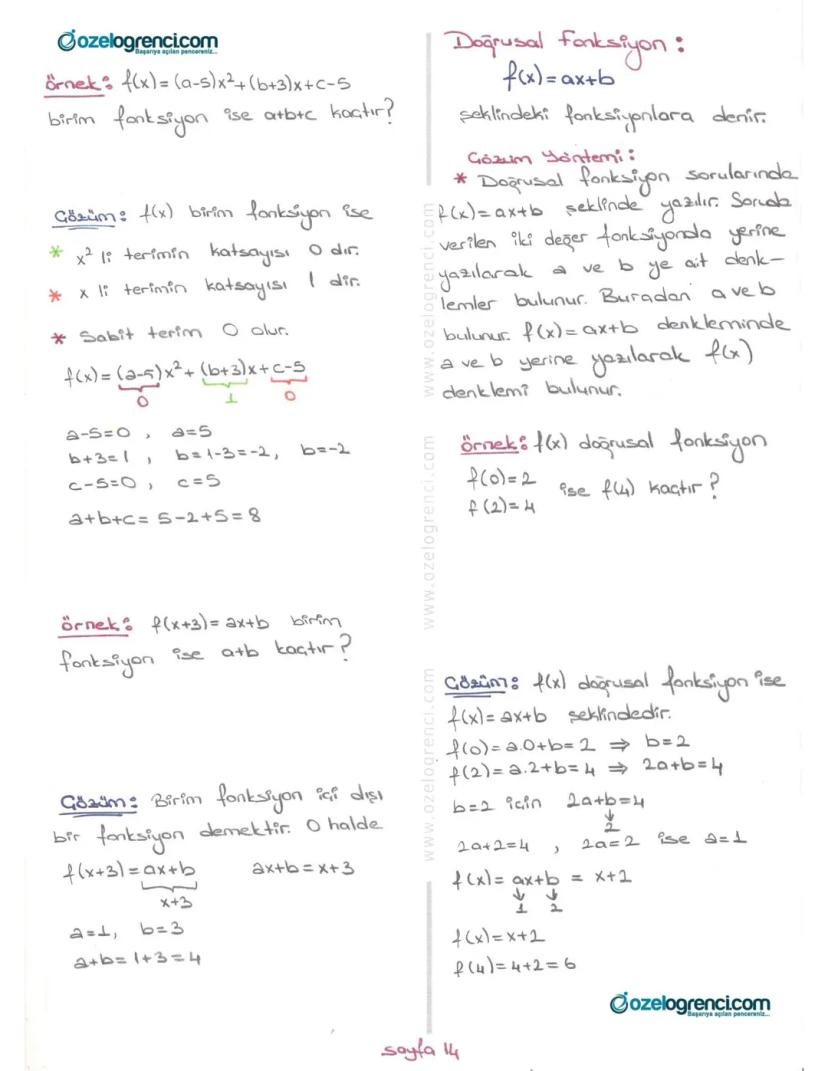 ozelogrenci.com
Başarıya açılan pencereniz...
örnek: f(x)=(a-5)x²+(b+3)x+c-5
birim fonksiyon ise a+b+c kaçtır?
Çözüm: f(x) birim fonksiyon ise
* x² li terimin katsayısı 0 dır.
* x li terimin katsayısı 1 dir.
* Sabit terim 0 olur.
f(x)=(a-5)x²+(b+3)x+c-5
0 1 0
a-5=0 , a=5
b+3=1 , b=1-3=-2, b=-2
c-5=0 , c=5
a+b+c= 5-2+5=8
örnek: f(x+3)=ax+b birim
fonksiyon ise a+b kaçtır?
Çözüm: Birim fonksiyon içi dışı
bir fonksiyon demektir. O halde
f(x+3)=ax+b ax+b=x+3
x+3
a=1, b=3
a+b=1+3=4
Doğrusal Fonksiyon:
f(x)=ax+b
şeklindeki fonksiyonlara denir.
Çözüm Yöntemi:
* Doğrusal fonksiyon sorularında
f(x)=ax+b şeklinde yazılır. Soruda
verilen iki değer fonksiyonda yerine
yazılarak a ve b ye ait denk-
lemler bulunur. Buradan a ve b
bulunur. f(x)=ax+b denkleminde
a ve b yerine yazılarak f(x)
denklemi bulunur.
örnek: f(x) doğrusal fonksiyon
f(0)=2
f(2)=4
ise f(4) kaçtır?
Çözüm: f(x) doğrusal fonksiyon ise
f(x)=ax+b şeklindedir.
f(0)=a.0+b=2 ⇒ b=2
f(2)=a.2+b=4 ⇒ 2a+b=4
b=2 için 2a+b=4
↓
2
2a+2=4 , 2a=2 ise a=1
f(x)= ax+b = x+2
↓ ↓
1 2
f(x)=x+2
f(4)=4+2=6
www.ozelogrenci.com
www.ozelogrenci.com
www.ozelogrenci.com
ozelogrenci.com
Başarıya açılan pencereniz...
sayfa 14